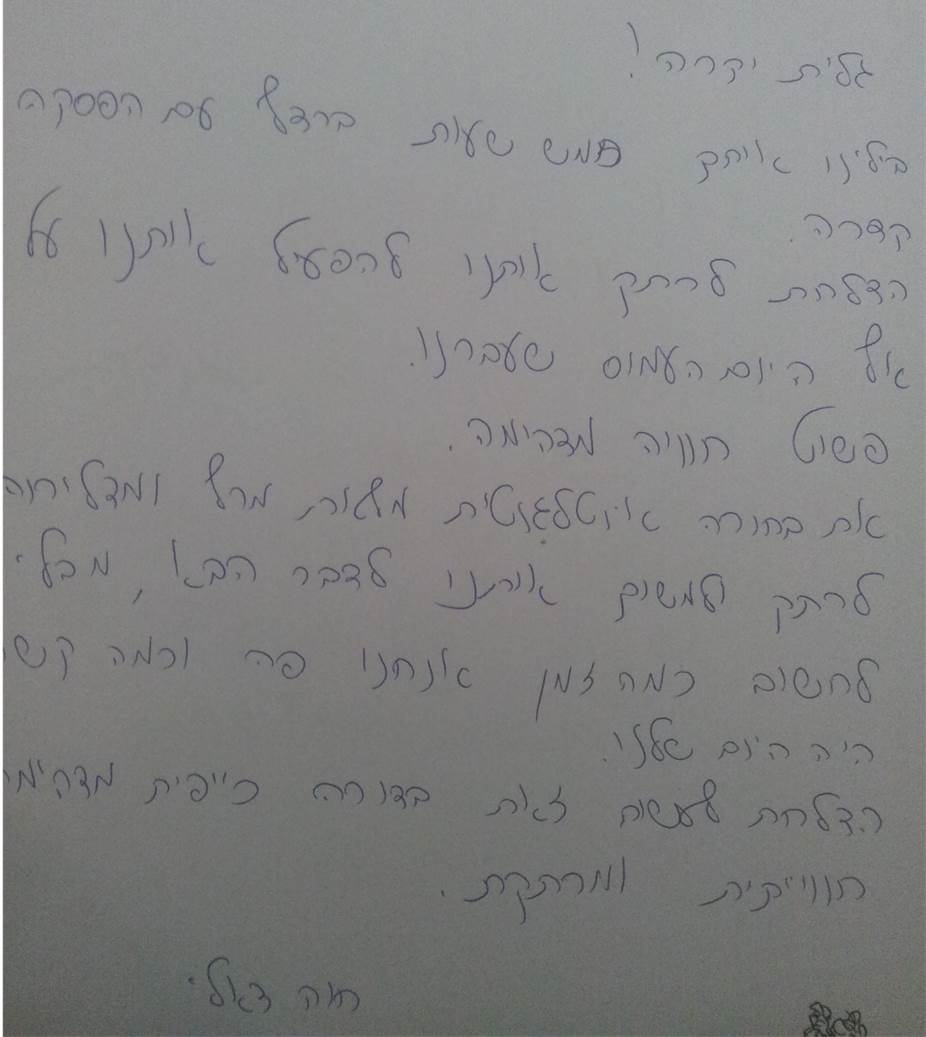 גלית יקרה!
בילינו איתך חמש שעות ברצף עם הפסקה
קצרה.
הצלחת לרתק אותנו להפעיל אותנו על
אף היום העמוס שעברנו.
פשוט חוויה מדהימה.
את בחורה אינטלגנטית מלאת מרץ ומצליחה
לרתק ולמשוך אותנו לדבר הבא, מבלי
לחשוב כמה זמן אנחנו פה וכמה קש
היה היום שלנו.
הצלחת לעשות זאת בצורה כייפית מדהימ
חווייתית ומרתקת.
חוה